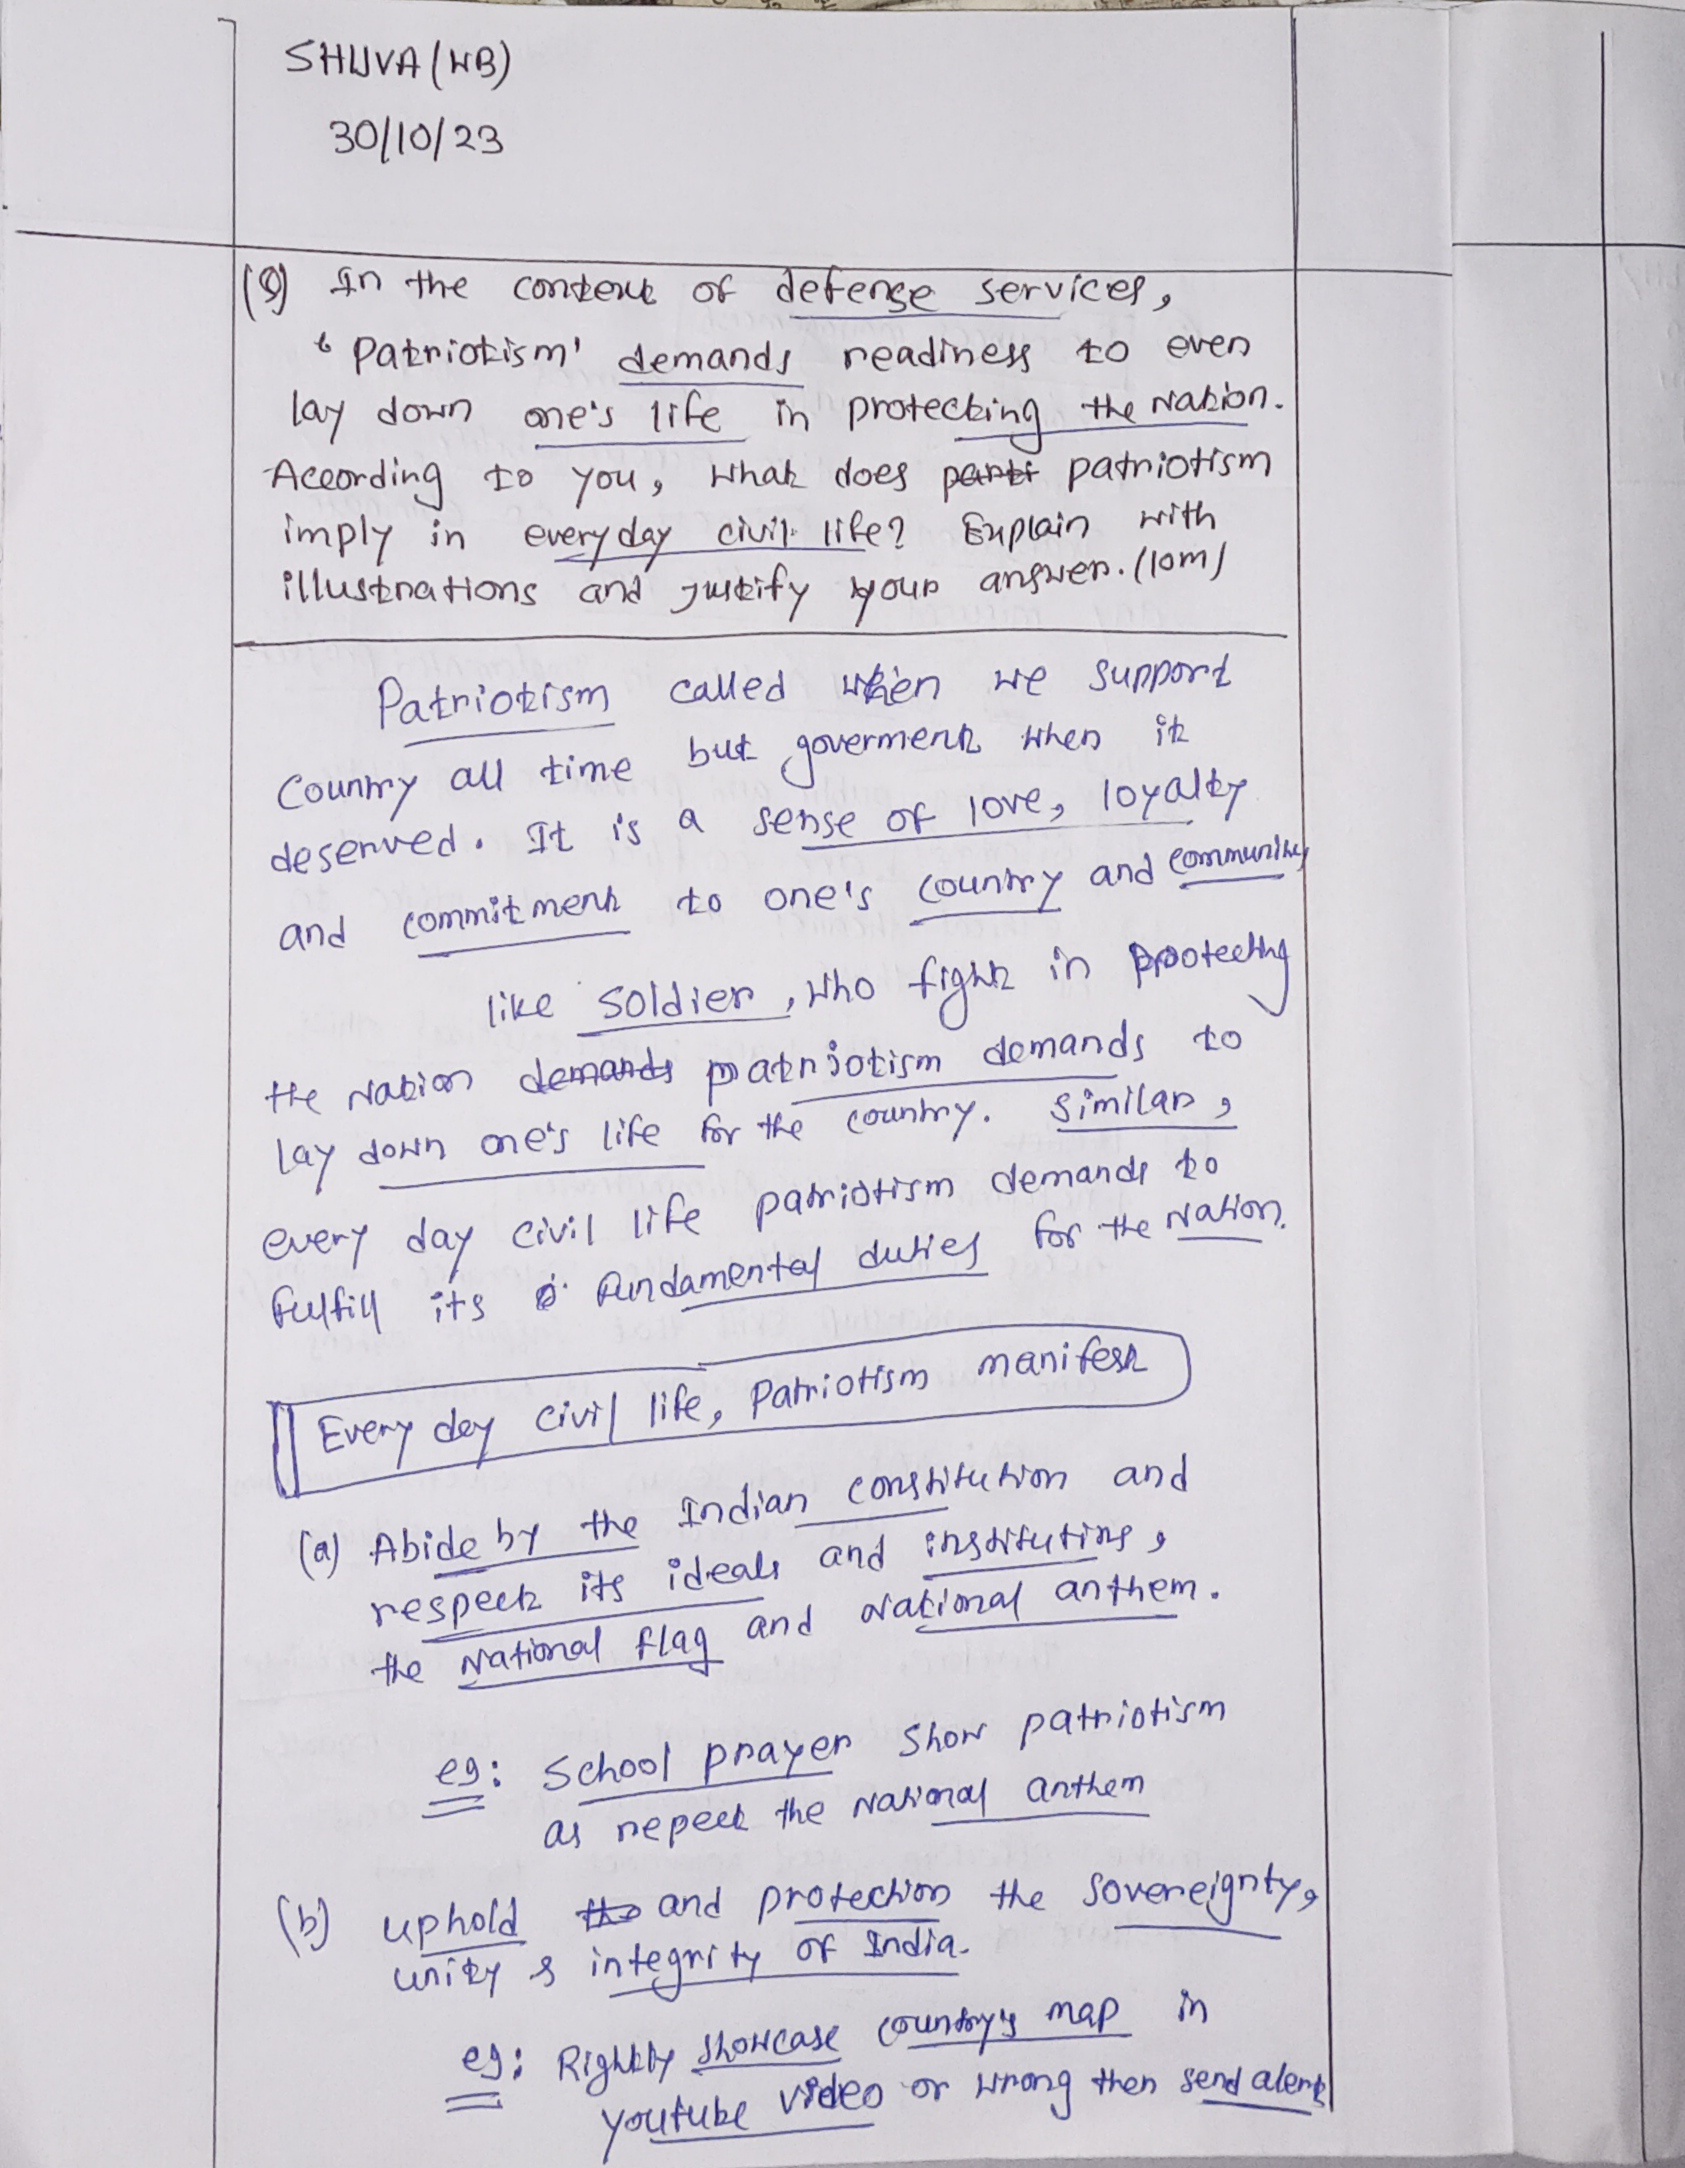 SHUVA (WB)
30/10/23
(Q) In the context of defense services,
'Patriotism' demands readiness to even
lay down one's life in protecting the Nation.
According to you, what does parti patriotism
imply in everyday civil life? Explain with
illustrations and justify your answer. (10m)
Patriotism called when we support
Country all time but goverment when it
deserved. It is a sense of love, loyalty
and commitment to one's country and community
like soldier, who fight in protecting
the Nation demands patriotism demands to
lay down one's life for the country. Similar,
every day civil life patriotism demands to
fulfill its fundamental duties for the Nation.
Every day civil life, Patriotism manifest
(a) Abide by the Indian constitution and
respect its ideals and institutins,
the National flag and National anthem.
eg: School prayer show patriotism
as repect the National anthem
(b) uphold the and protection the sovereignty,
unity & integrity of India.
eg: Rightly showcase country's map in
youtube video or wrong then send alert